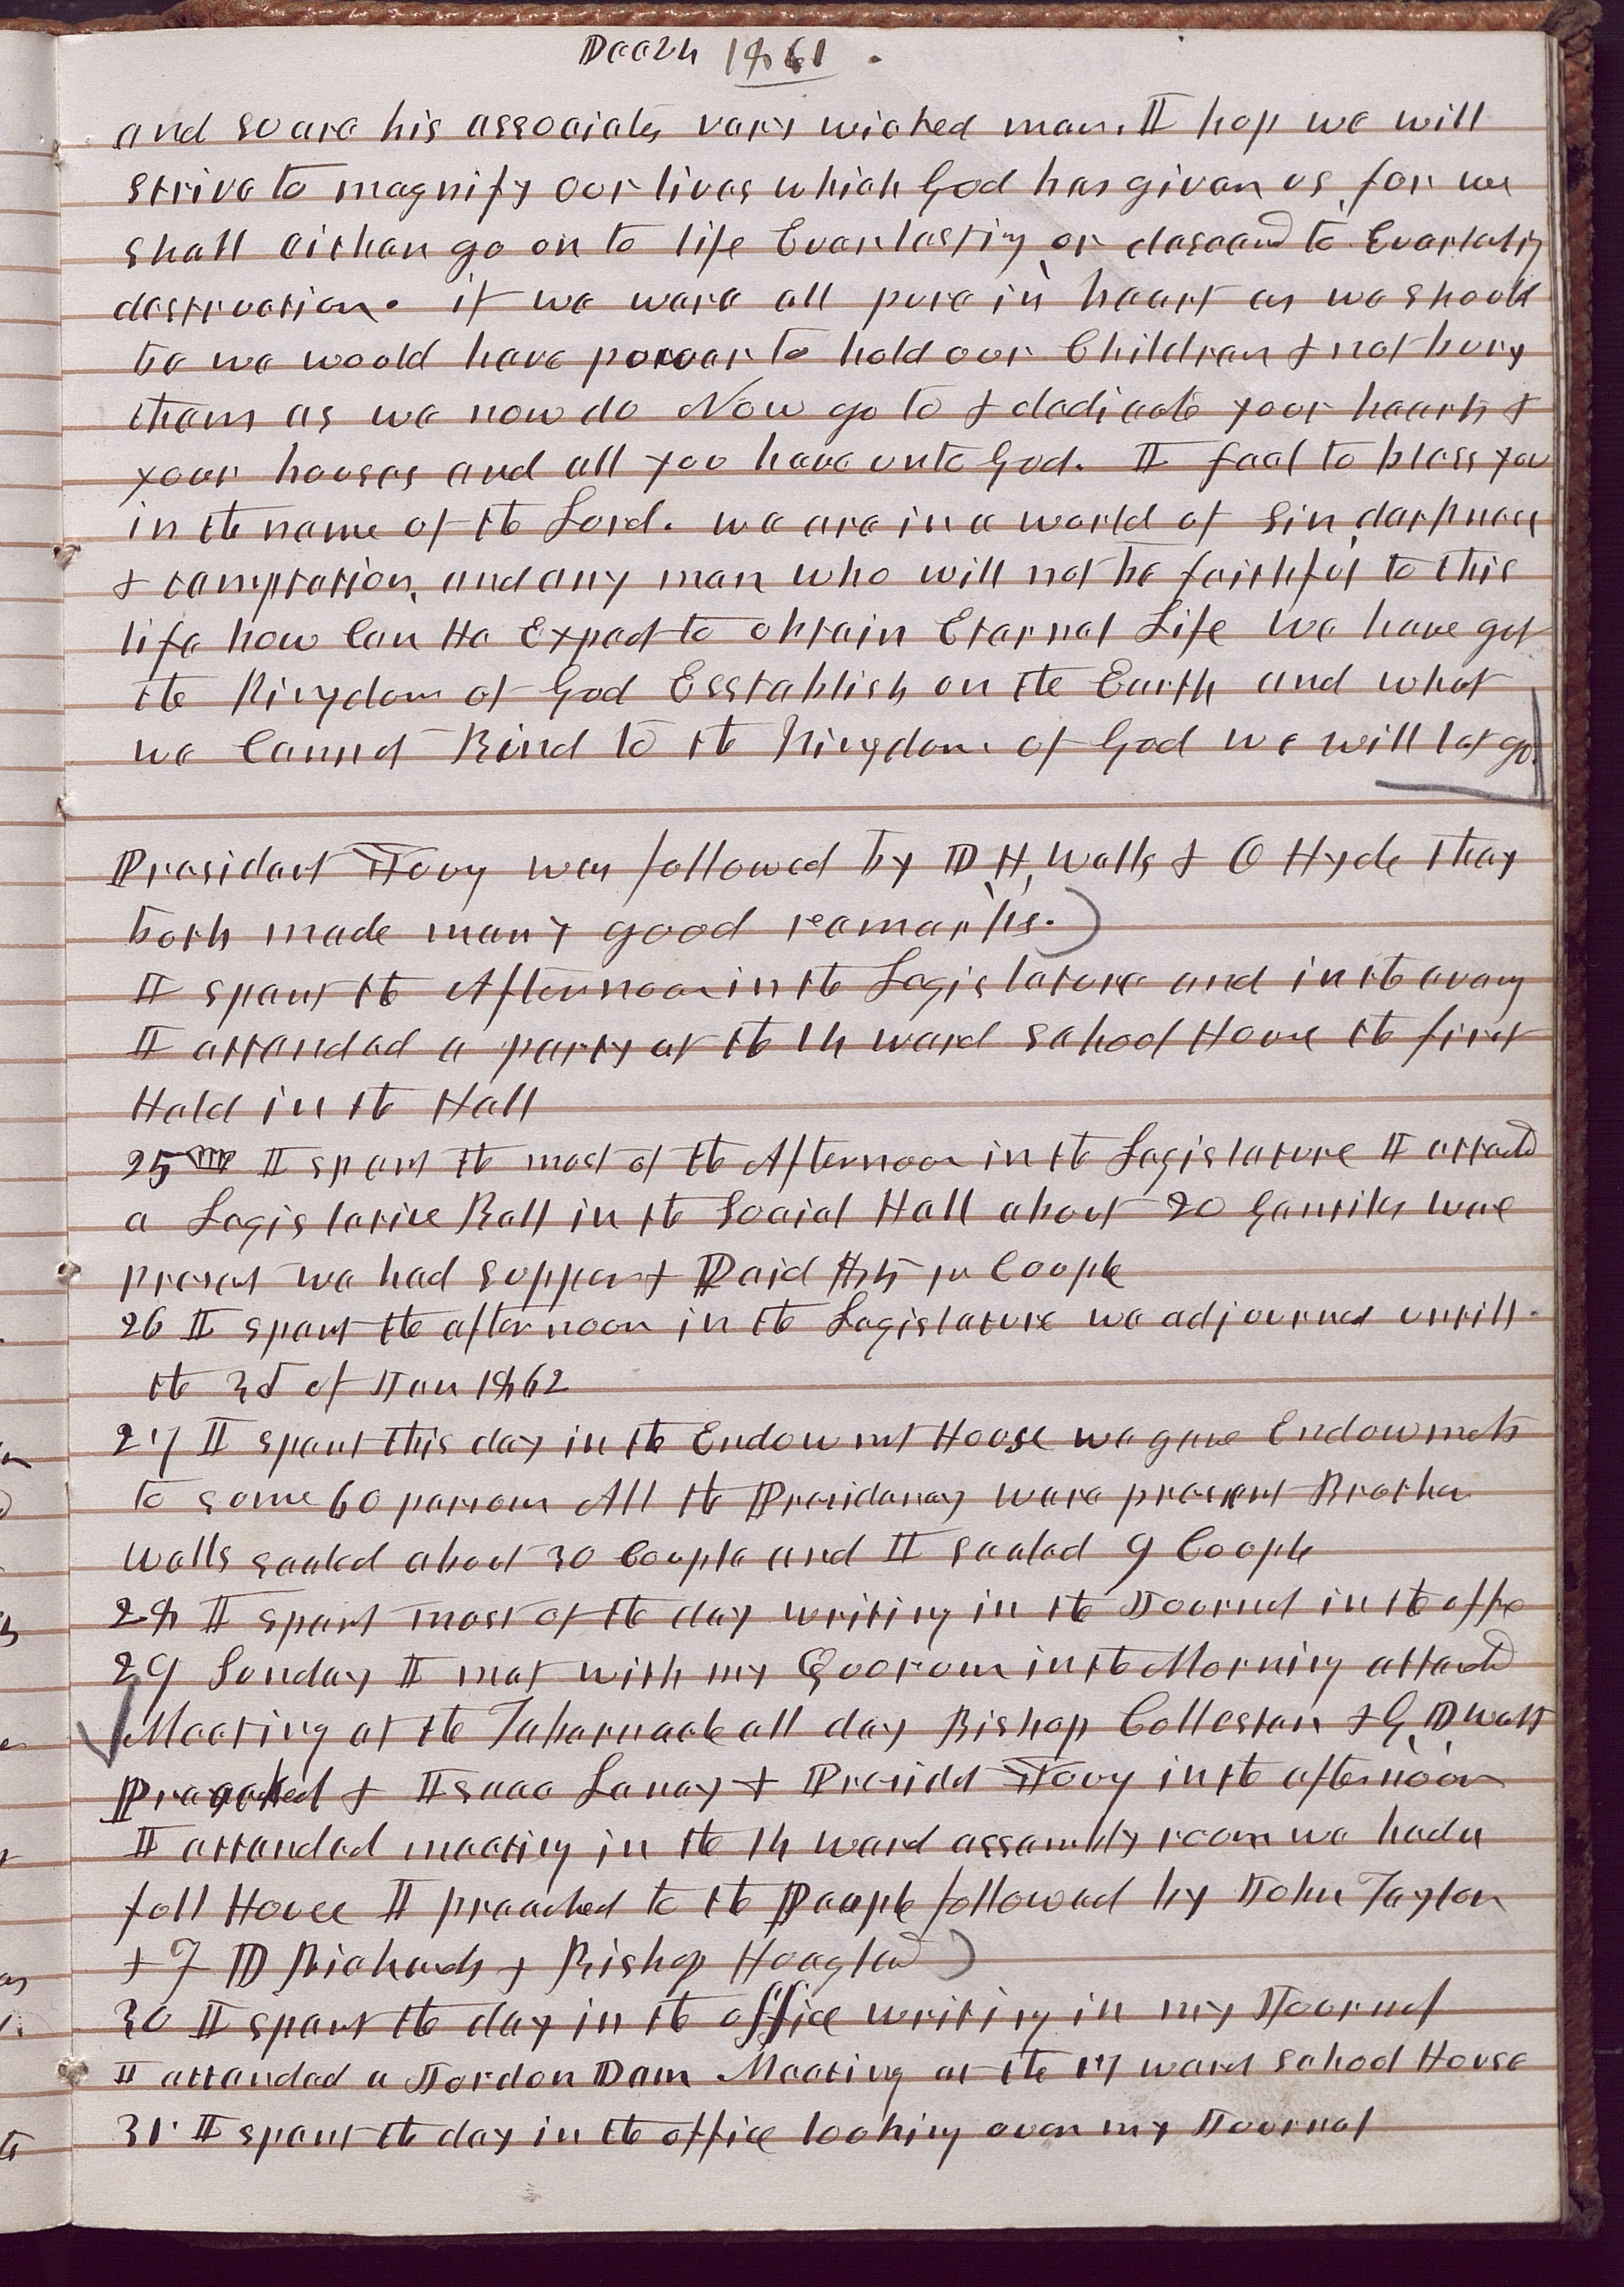 Dec 24 1861.
and so are his associates very wicked men. I hop we will
strive to magnify our lives which God has given us, for we
shall either go on to life Everlasting or descend to Everlasting
destruction. if we were all pure in heart as we should
be we would have power to hold our Children & not bury
them as we now do Now go to & dedicate your hearts &
your houses and all you have unto God. I feel to bless you
in the name of the Lord. we are in a world of sin, darkness
& temptation, and any man who will not be faithful to this
life how Can He Expect to obtain Eternal Life We have got
the Kingdom of God Esstablish on the Earth and what
we Cannot Bind to the Kingdom of God we will let go.
President Young was followed by D H, Wells & O Hyde they
both made many good remarks.
I spent the Afternoon in the Legislature and in the eveng
I attended a party at the 14 ward school House the first
Held in the Hall
25 I spent the most of the Afternoon in the Legislature I attended
a Legislative Ball in the Social Hall about 90 Gentiles were
present we had supper & Paid pr Couple
26 I spent the afternoon in the Legislature we adjourned untill
the 3d of Jan 1862
27 I spent this day in the Endowmt House we gave Endowmets
to some 60 persons All the Presidency were present Brother
Wells sealed about 30 Couple and I sealed 9 Couple
28 I spent most of the day writing in the Journal in the offe
29 Sunday I met with my Quorum in the Morning attended
Meeting at the Tabernacle all day Bishop Callester & G, D, Watt
Preached & Isaac Laney & Presidet Young in the afternoon
I attended meeting in the 14 ward assembly room we had a
full House I preached to the People followed by John Taylor
& F D Richards & Bishop Hoagland
30 I spent the day in the office writing in my Journal
I attended a Jordon Dam Meeting at the 17 ward school House
31 I spent the day in the office looking over my Journal